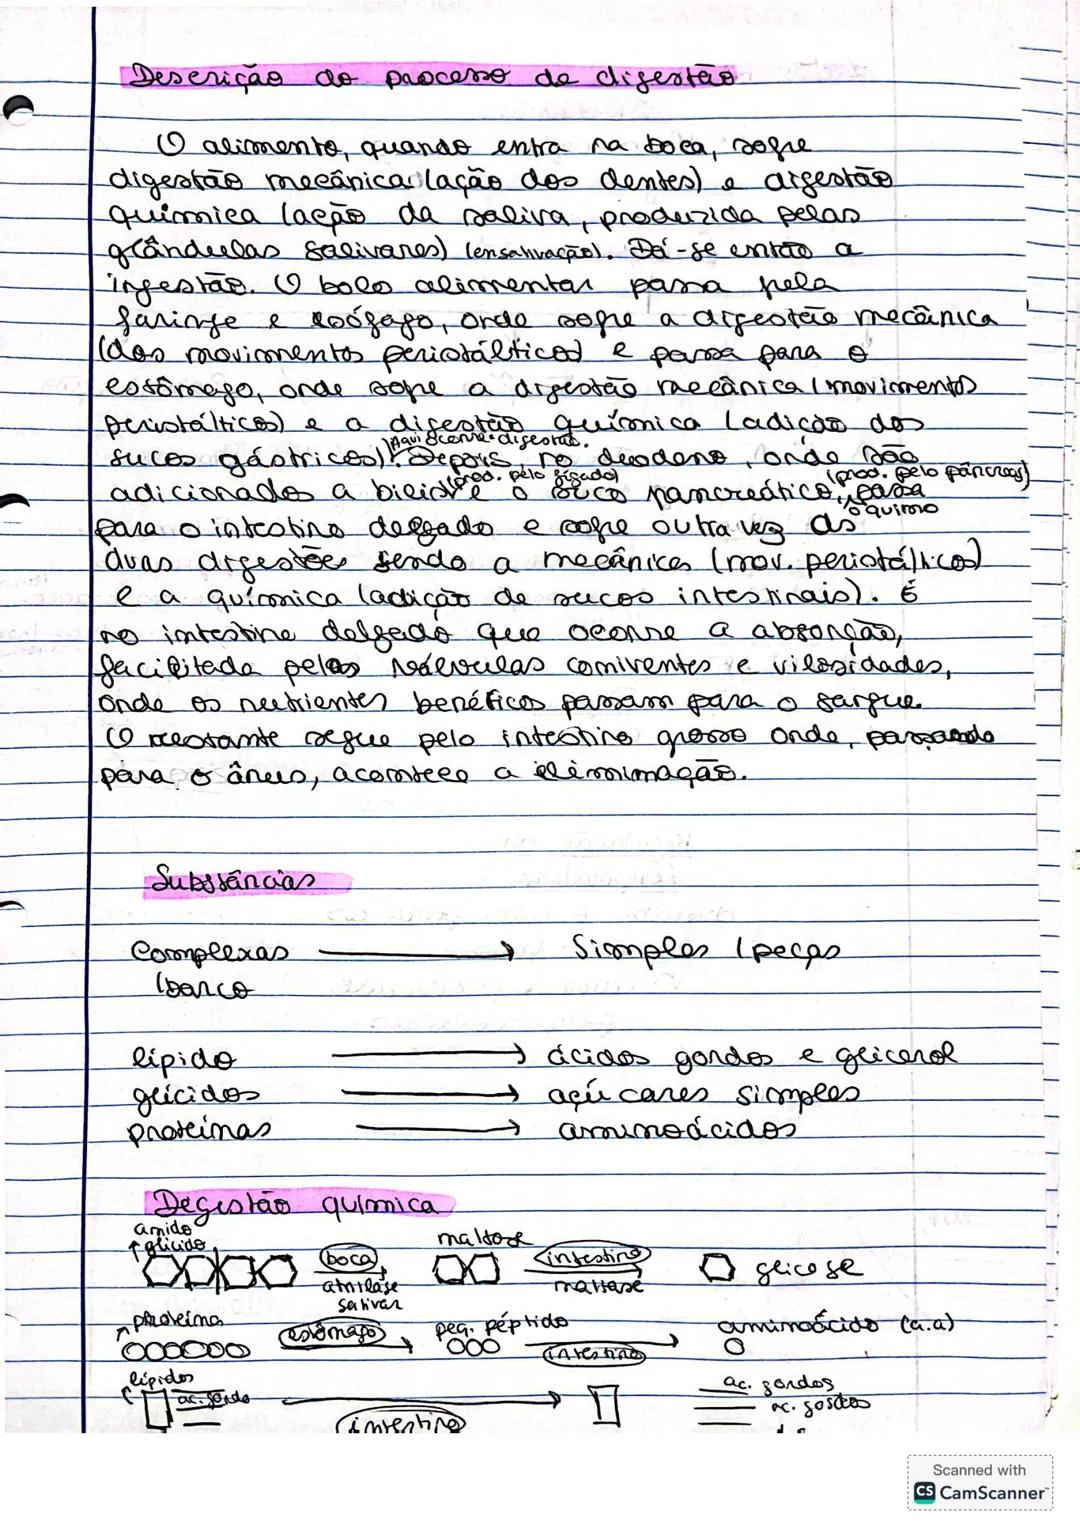 Descrição do processo de digestão
O alimento, quando entra na boca, sofre
digestão mecânica (ação dos dentes) e digestão
química (ação da saliva, produzida pelas
glândulas salivares) (ensalivação). Dá-se então a
ingestão. O bolo alimentar passa pela
faringe e esófago, onde sofre a digestão mecânica
(dos movimentos peristálticos) e passa para o
estômago, onde sofre a digestão mecânica (movimentos
peristálticos) e a digestão química (adição dos
Aqui ocorre digestão.
sucos gástricos). Depois, no duodeno, onde são
(prod. pelo fígado) (prod. pelo pâncreas)
adicionados a bílis e o suco pancreático, passa
o quimo
para o intestino delgado e sofre outra vez as
duas digestões sendo a mecânica (mov. peristálticos)
e a química (adição de sucos intestinais). É
no intestino delgado que ocorre a absorção,
facilitada pelas válvulas coniventes e vilosidades,
onde os nutrientes benéficos passam para o sangue.
O restante segue pelo intestino grosso onde, passando
para o ânus, acontece a eliminação.
Substâncias
Complexas → Simples (peças
(barco
lípido → ácidos gordos e glicerol
glícidos → açúcares simples
proteínas → aminoácidos
Degestão química
amido
↑ glícido maltose
boca intestino glicose
amilase maltase
salivar
proteína peq. péptido aminoácido (a.a)
estômago intestino
lípidos ac. gordos
ac. gordo ac. gordos
intestino
Scanned with
CS CamScanner